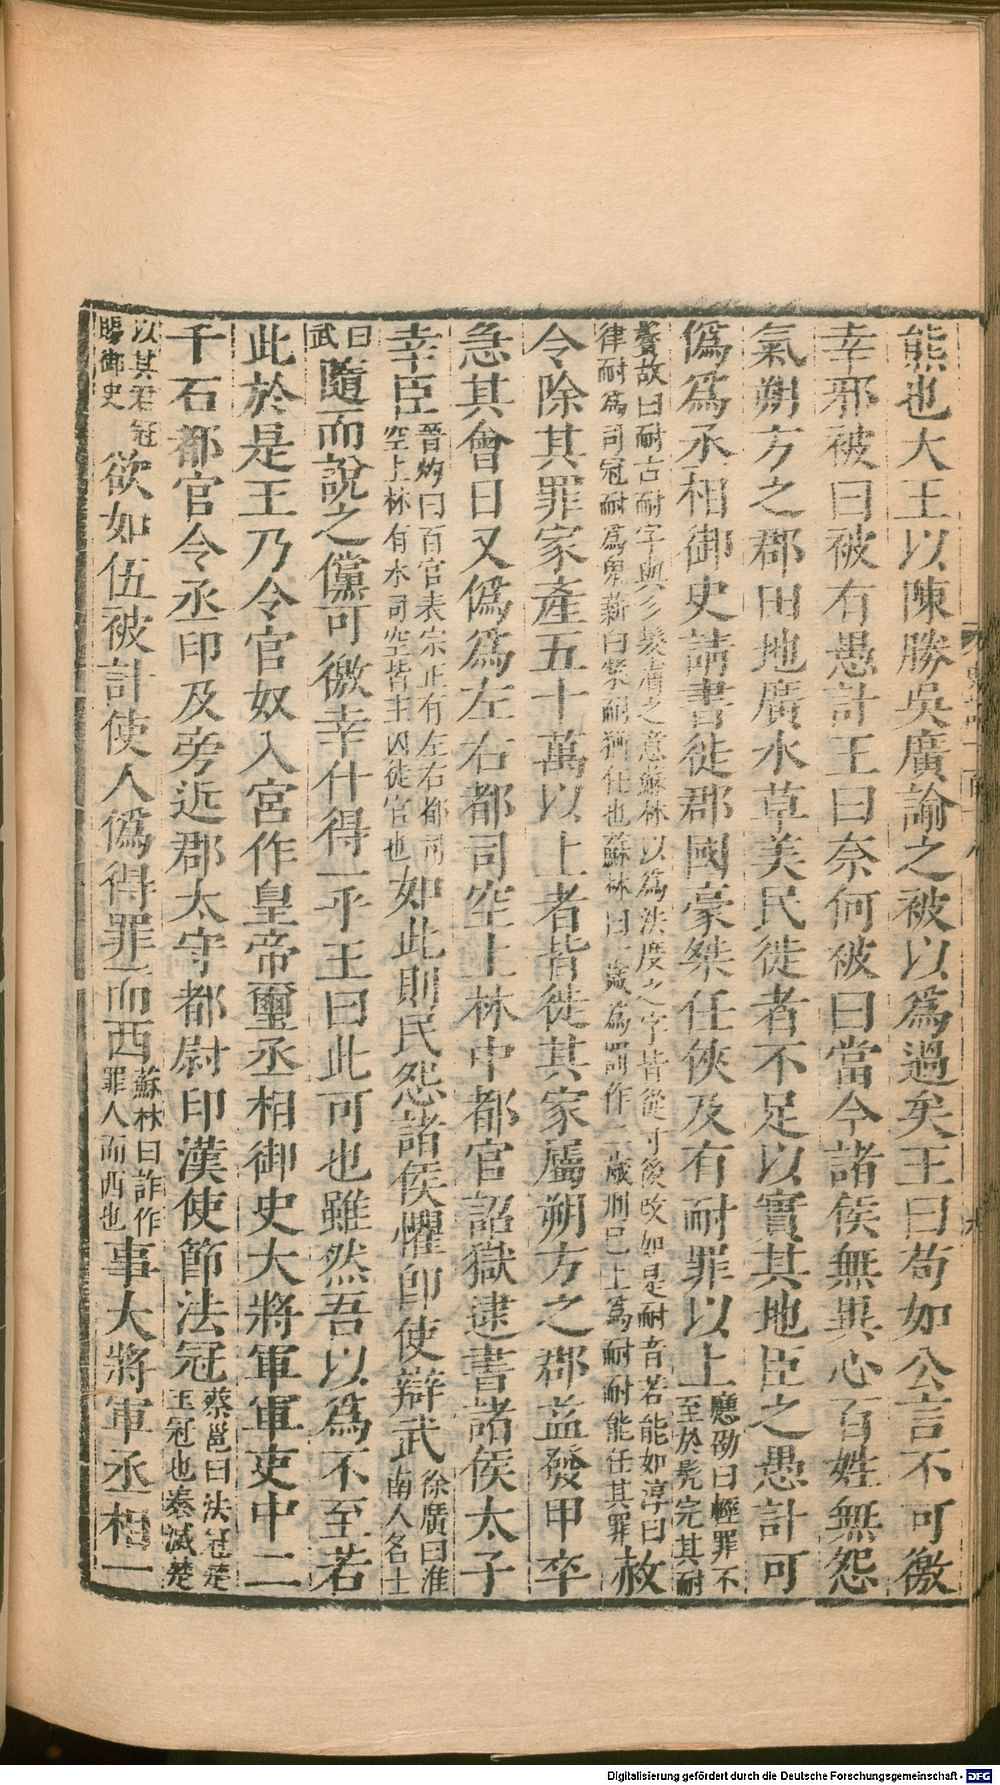 熊也大王以陳勝吳廣諭之被以爲過矣王曰苟如公言不可徼
幸邪被曰被有愚計王曰奈何被曰當今諸侯無異心百姓無怨
氣朔方之郡田地廣水草美民徙者不足以實其地臣之愚計可
僞爲丞相御史請書徙郡國豪桀任俠及有耐罪以上應劭曰輕罪不至於髡完其耐
鬢故曰耐古耐字與彡髮膚之意蘇林以爲法度之字皆從寸後改如是耐音若能如淳曰律耐爲司寇耐爲鬼薪白粲耐猶任也蘇林曰一歲爲罰作二歲刑已上爲耐耐能任其罪赦
令除其罪家產五十萬以上者皆徙其家屬朔方之郡益發甲卒
急其會日又僞爲左右都司空上林中都官詔獄逮書諸侯太子
幸臣晉灼曰百官表宗正有左右都司空上林有水司空皆主囚徒官也如此則民怨諸侯懼卽使辯武徐廣曰淮南人名士
曰武隨而說之儻可徼幸什得一乎王曰此可也雖然吾以爲不至若
此於是王乃令官奴入宮作皇帝璽丞相御史大將軍軍吏中二
千石都官令丞印及旁近郡太守都尉印漢使節法冠蔡邕曰法冠楚王冠也秦滅楚
以其君冠賜御史欲如伍被計使人僞得罪而西蘇林曰詐作罪人而西也事大將軍丞相一
Digitalisierung gefördert durch die Deutsche Forschungsgemeinschaft - DFG